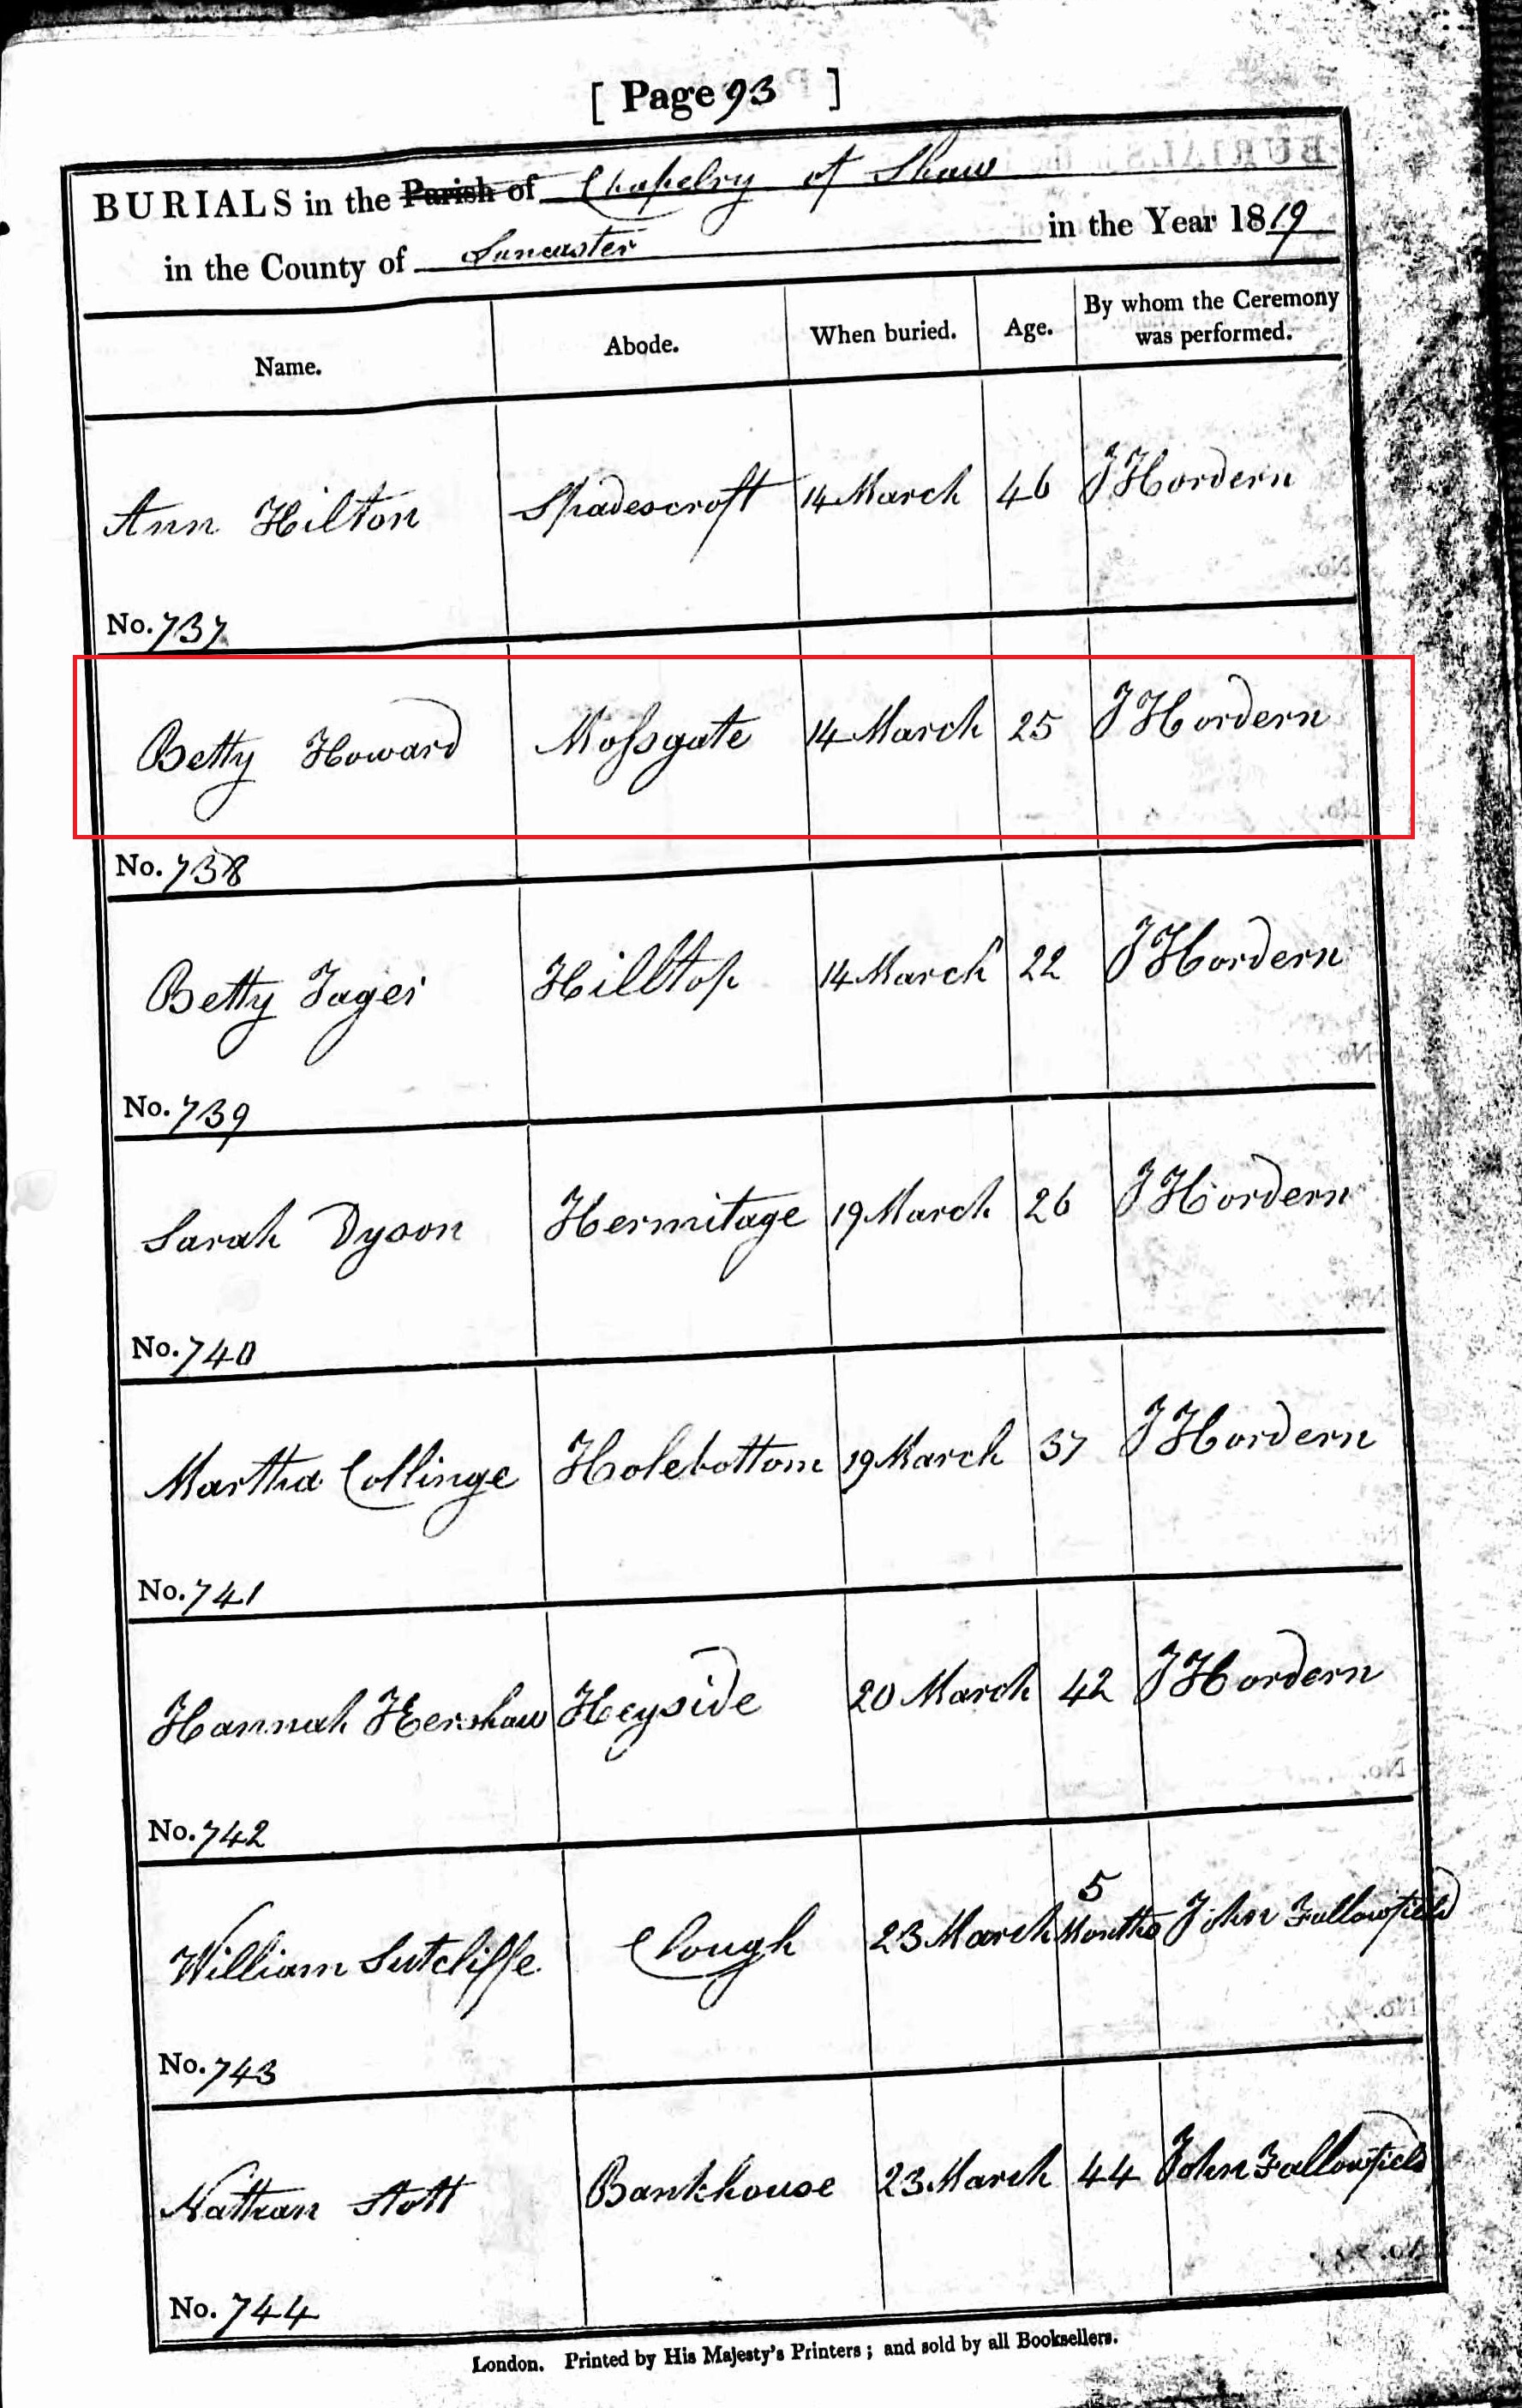 [ Page 93 ]
BURIALS in the Parish of Chapelry of Shaw
in the County of Lancaster in the Year 1819
Name. Abode. When buried. Age. By whom the Ceremony was performed.
Ann Hilton Shadescroft 14 March 46 J Hordern
No. 737
Betty Howard Moſsgate 14 March 25 J Hordern
No. 738
Betty Hilltop 14 March 22 J Hordern
No. 739
Sarah Dyson Hermitage 19 March 26 J Hordern
No. 740
Martha Collinge Holebottom 19 March 37 J Hordern
No. 741
Hannah Kershaw Heyside 20 March 42 J Hordern
No. 742
William Sutcliffe Clough 23 March 5 Months John Fallowfield
No. 743
Nathan Stott Bankhouse 23 March 44 John Fallowfield
No. 744
London. Printed by His Majesty's Printers; and sold by all Booksellers.